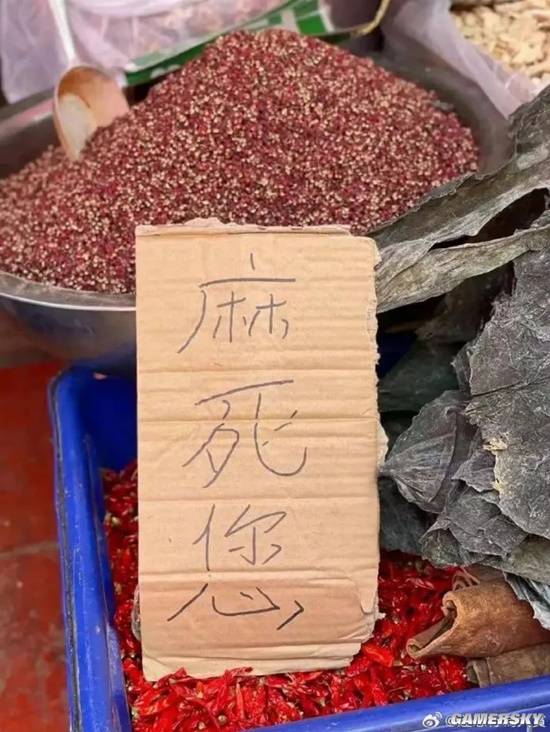 麻
死
您
GAMERSKY